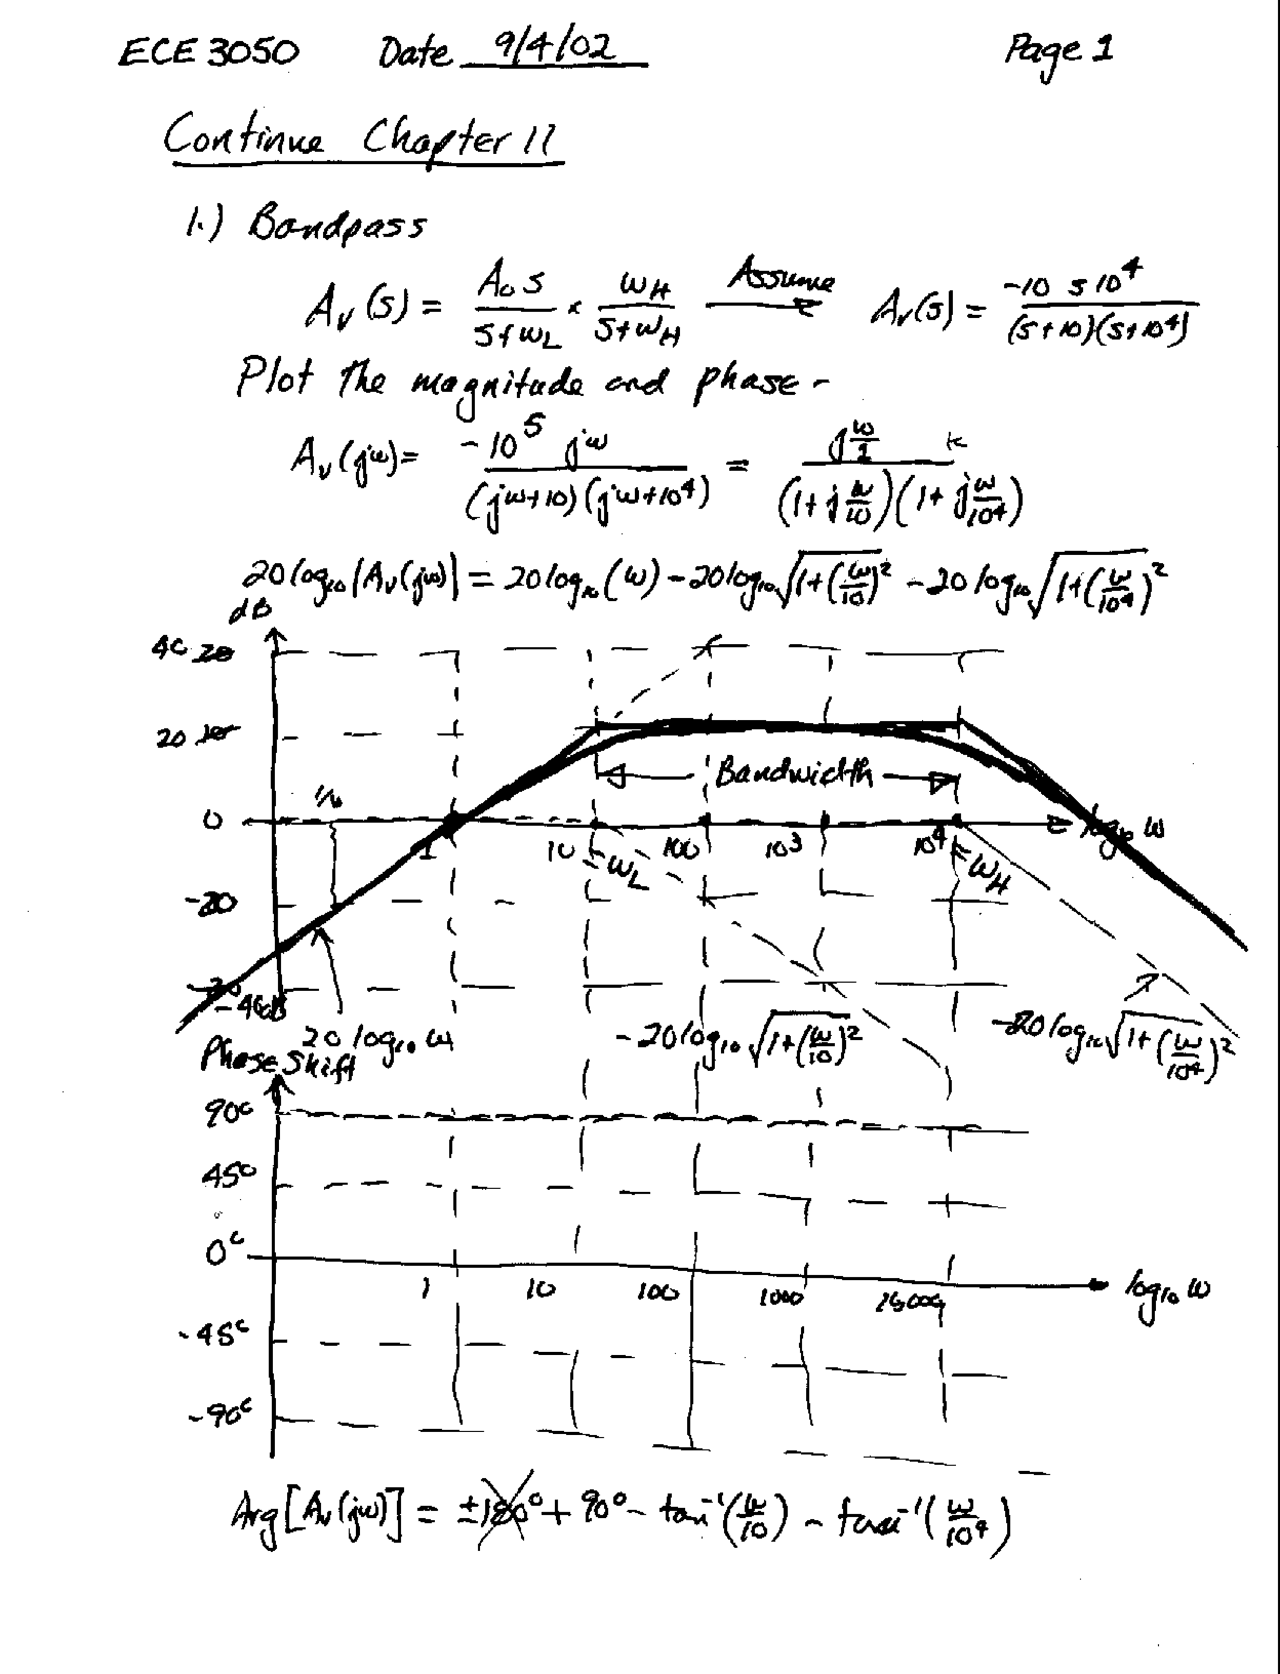 ECE 3050 Date 9/4/02 Page 1
Continue Chapter 11
1.) Bandpass
A_v(s) = A_0 s / (s+ω_L) × ω_H / (s+ω_H) Assume → A_v(s) = -10 s 10^4 / ((s+10)(s+10^4))
Plot the magnitude and phase -
A_v(jω) = -10^5 jω / ((jω+10)(jω+10^4)) = j ω/1 / ((1+j ω/10)(1+j ω/10^4))
20 log_10 |A_v(jω)| = 20 log_10 (ω) - 20 log_10 √(1+(ω/10)^2) - 20 log_10 √(1+(ω/10^4)^2)
dB
40
20
Bandwidth
0 1 10 100 10^3 10^4 log_10 ω
=ω_L =ω_H
-20
-40dB
20 log_10 ω -20 log_10 √(1+(ω/10)^2) -20 log_10 √(1+(ω/10^4)^2)
Phase Shift
90°
45°
0°
1 10 100 1000 log_10 ω
-45°
-90°
Arg[A_v(jω)] = ±180° + 90° - tan^-1(ω/10) - tan^-1(ω/10^4)